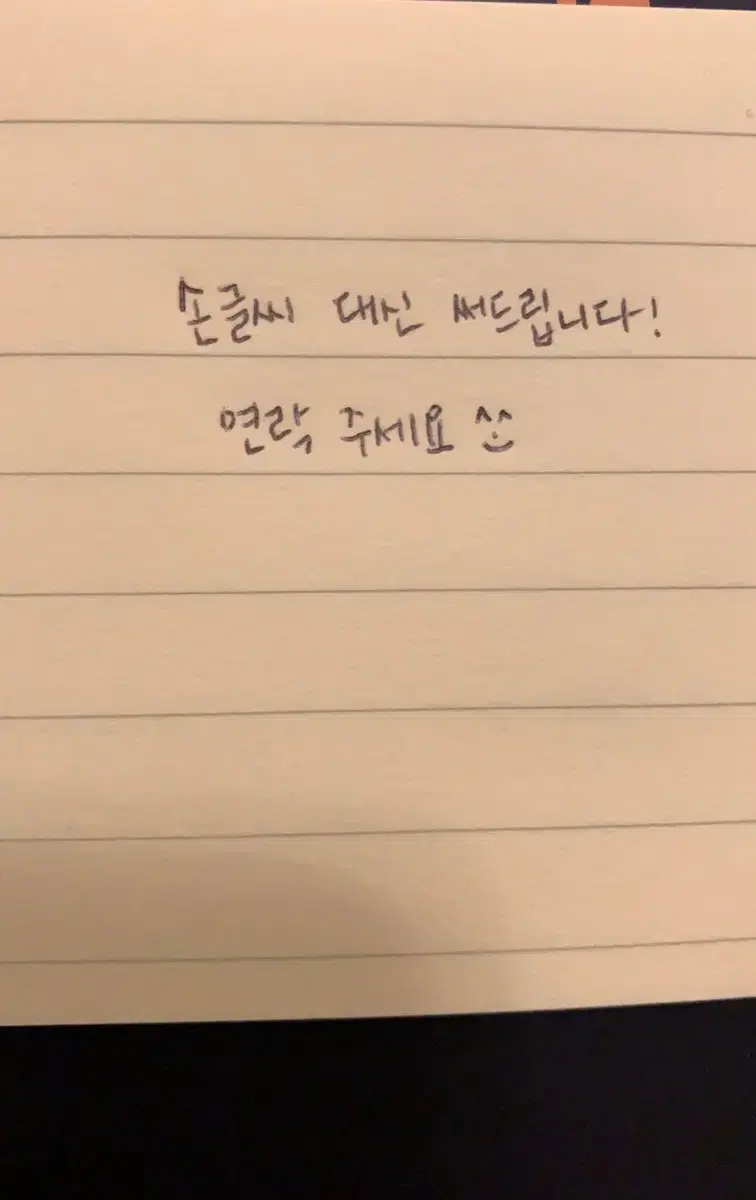 손글씨 대신 써드립니다!
연락 주세요 ^^